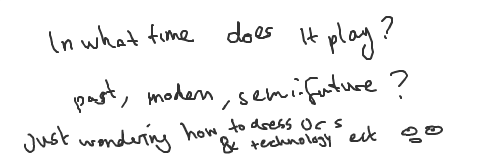 In what time does it play?
past, modern, semi-future?
Just wondering how to dress OCs
& technology ect